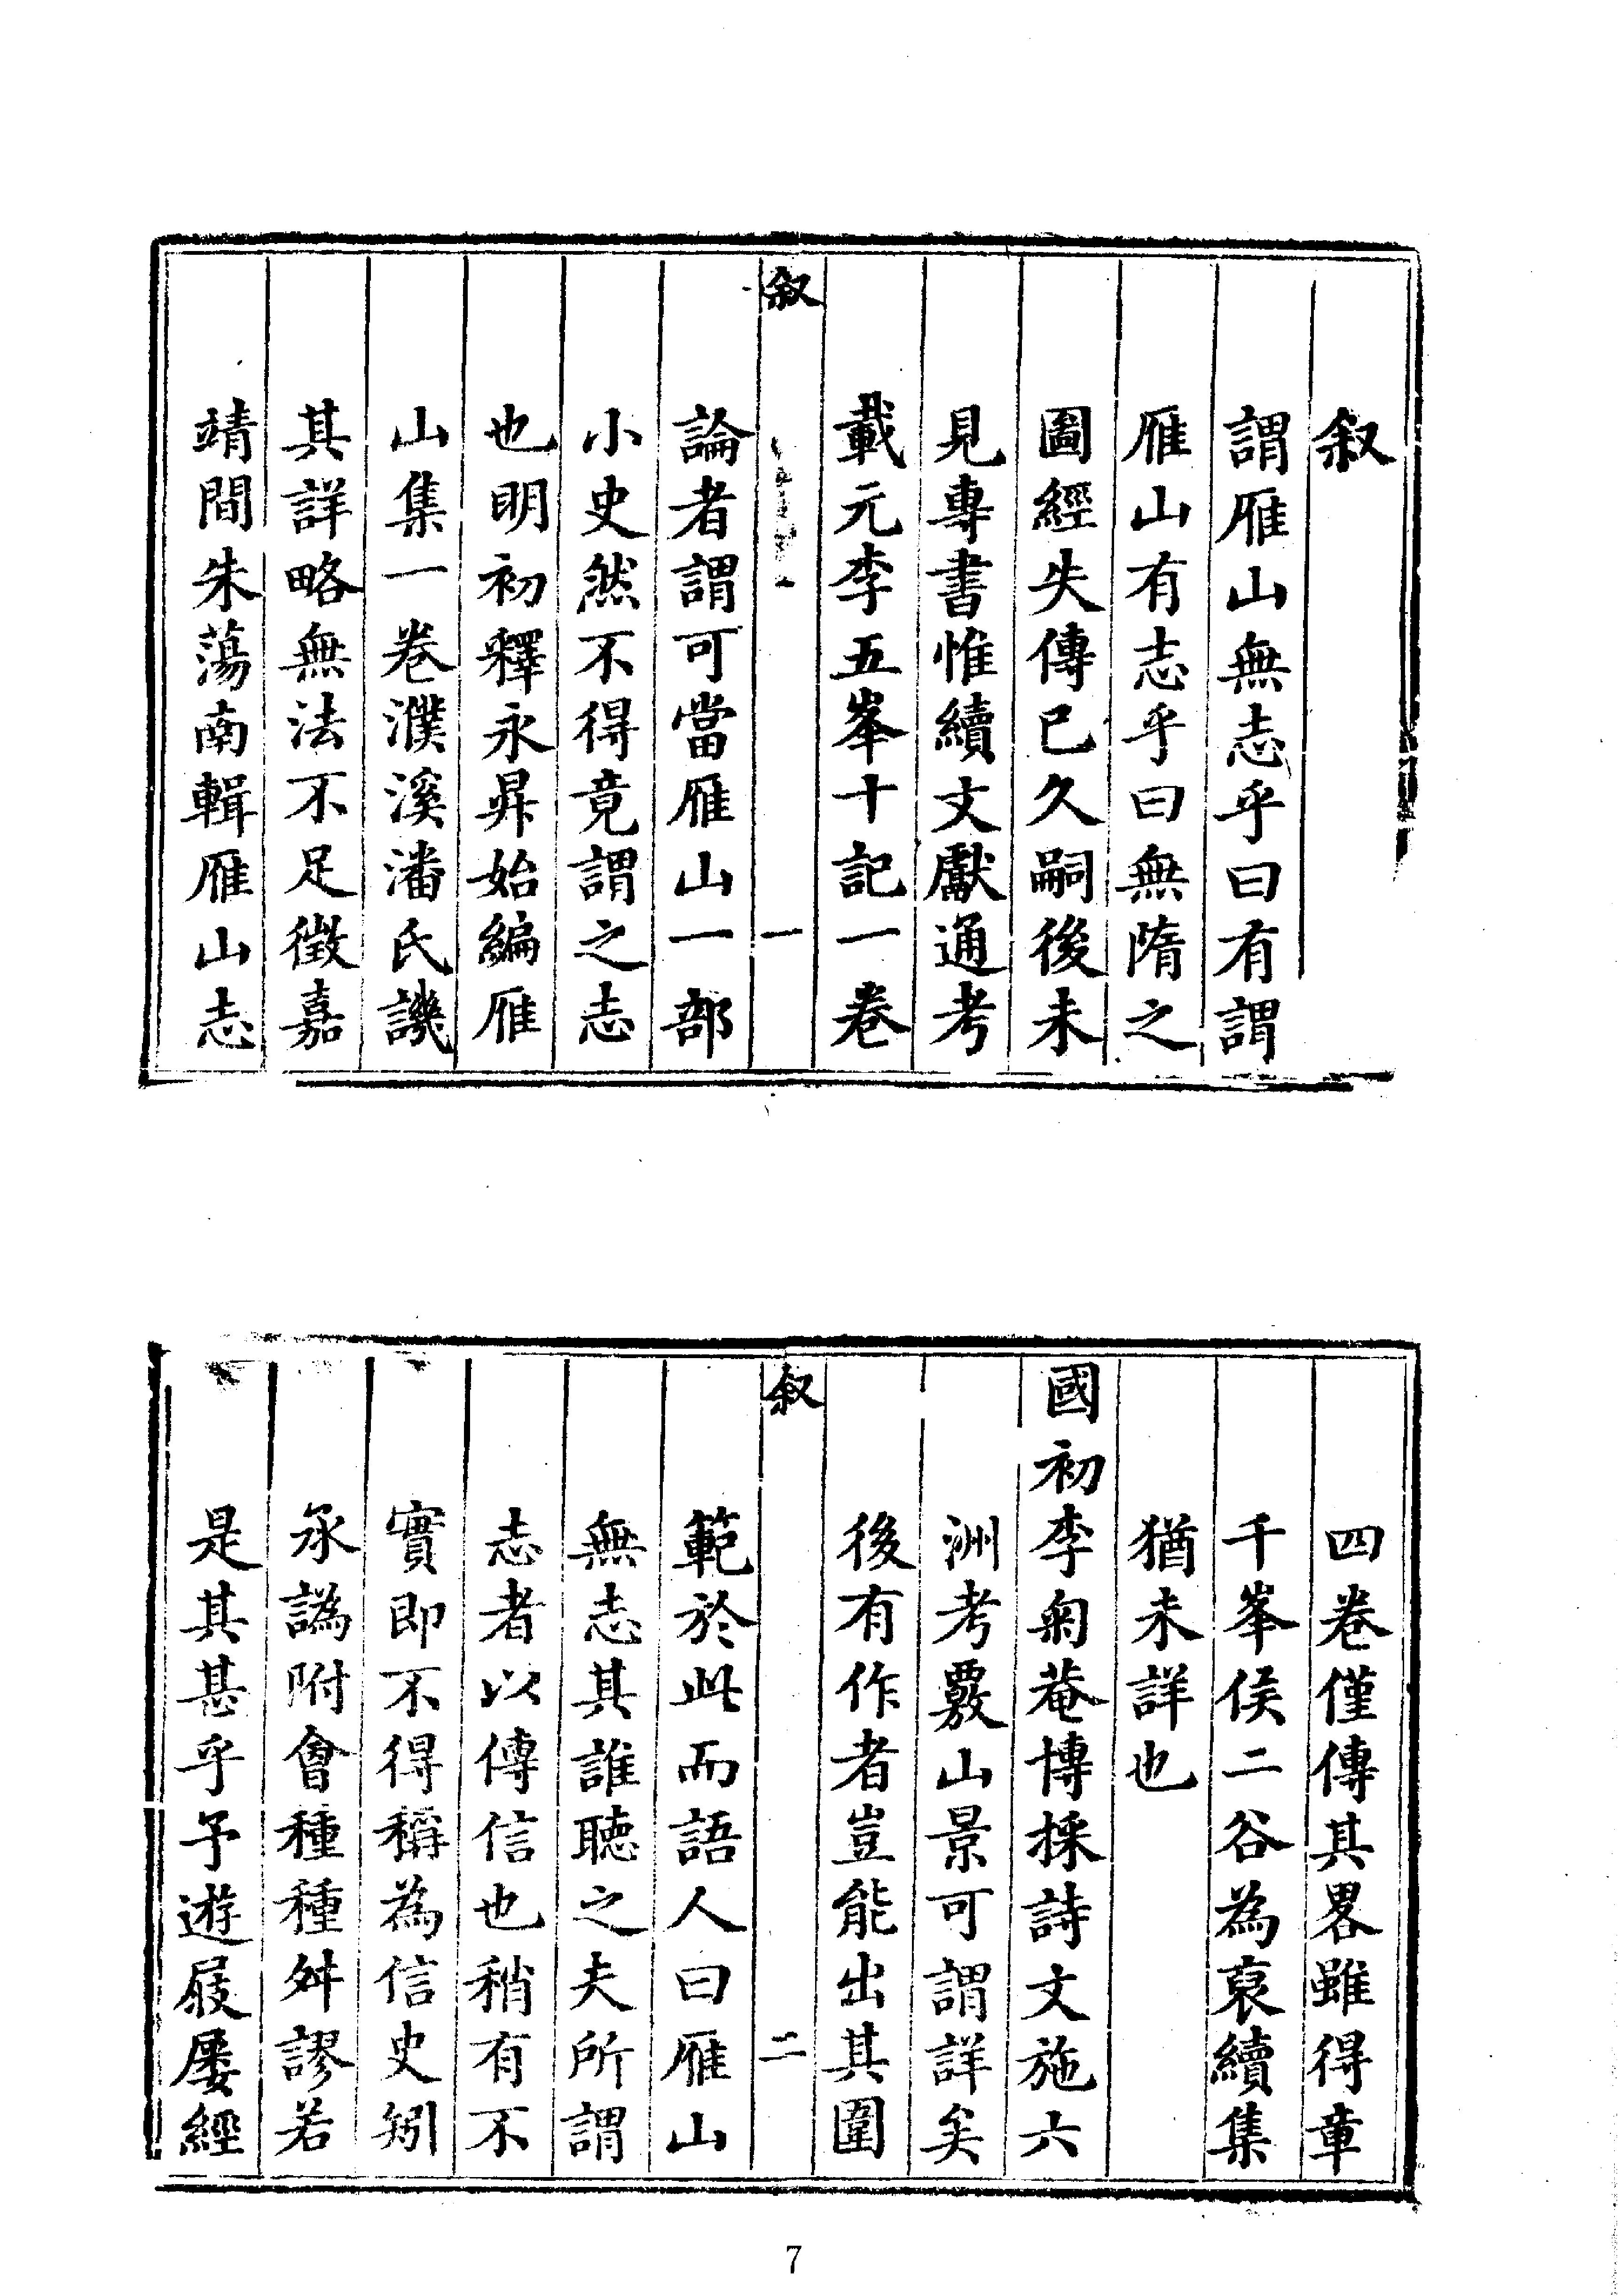 叙
謂雁山無志乎曰有謂
雁山有志乎曰無隋之
圖經失傳已久嗣後未
見專書惟續文獻通考
載元李五峯十記一卷
叙
一
論者謂可當雁山一部
小史然不得竟謂之志
也明初釋永昇始編雁
山集一卷濮溪潘氏譏
其詳略無法不足徵嘉
靖間朱蕩南輯雁山志
四卷僅傳其畧雖得章
千峯侯二谷為裒續集
猶未詳也
國初李菊菴博採詩文施六
洲考覈山景可謂詳矣
後有作者豈能出其圍
叙
二
範於此而語人曰雁山
無志其誰聽之夫所謂
志者以傳信也稍有不
實即不得稱為信史矧
承譌附會種種舛謬若
是其甚乎予遊屐屢經
7